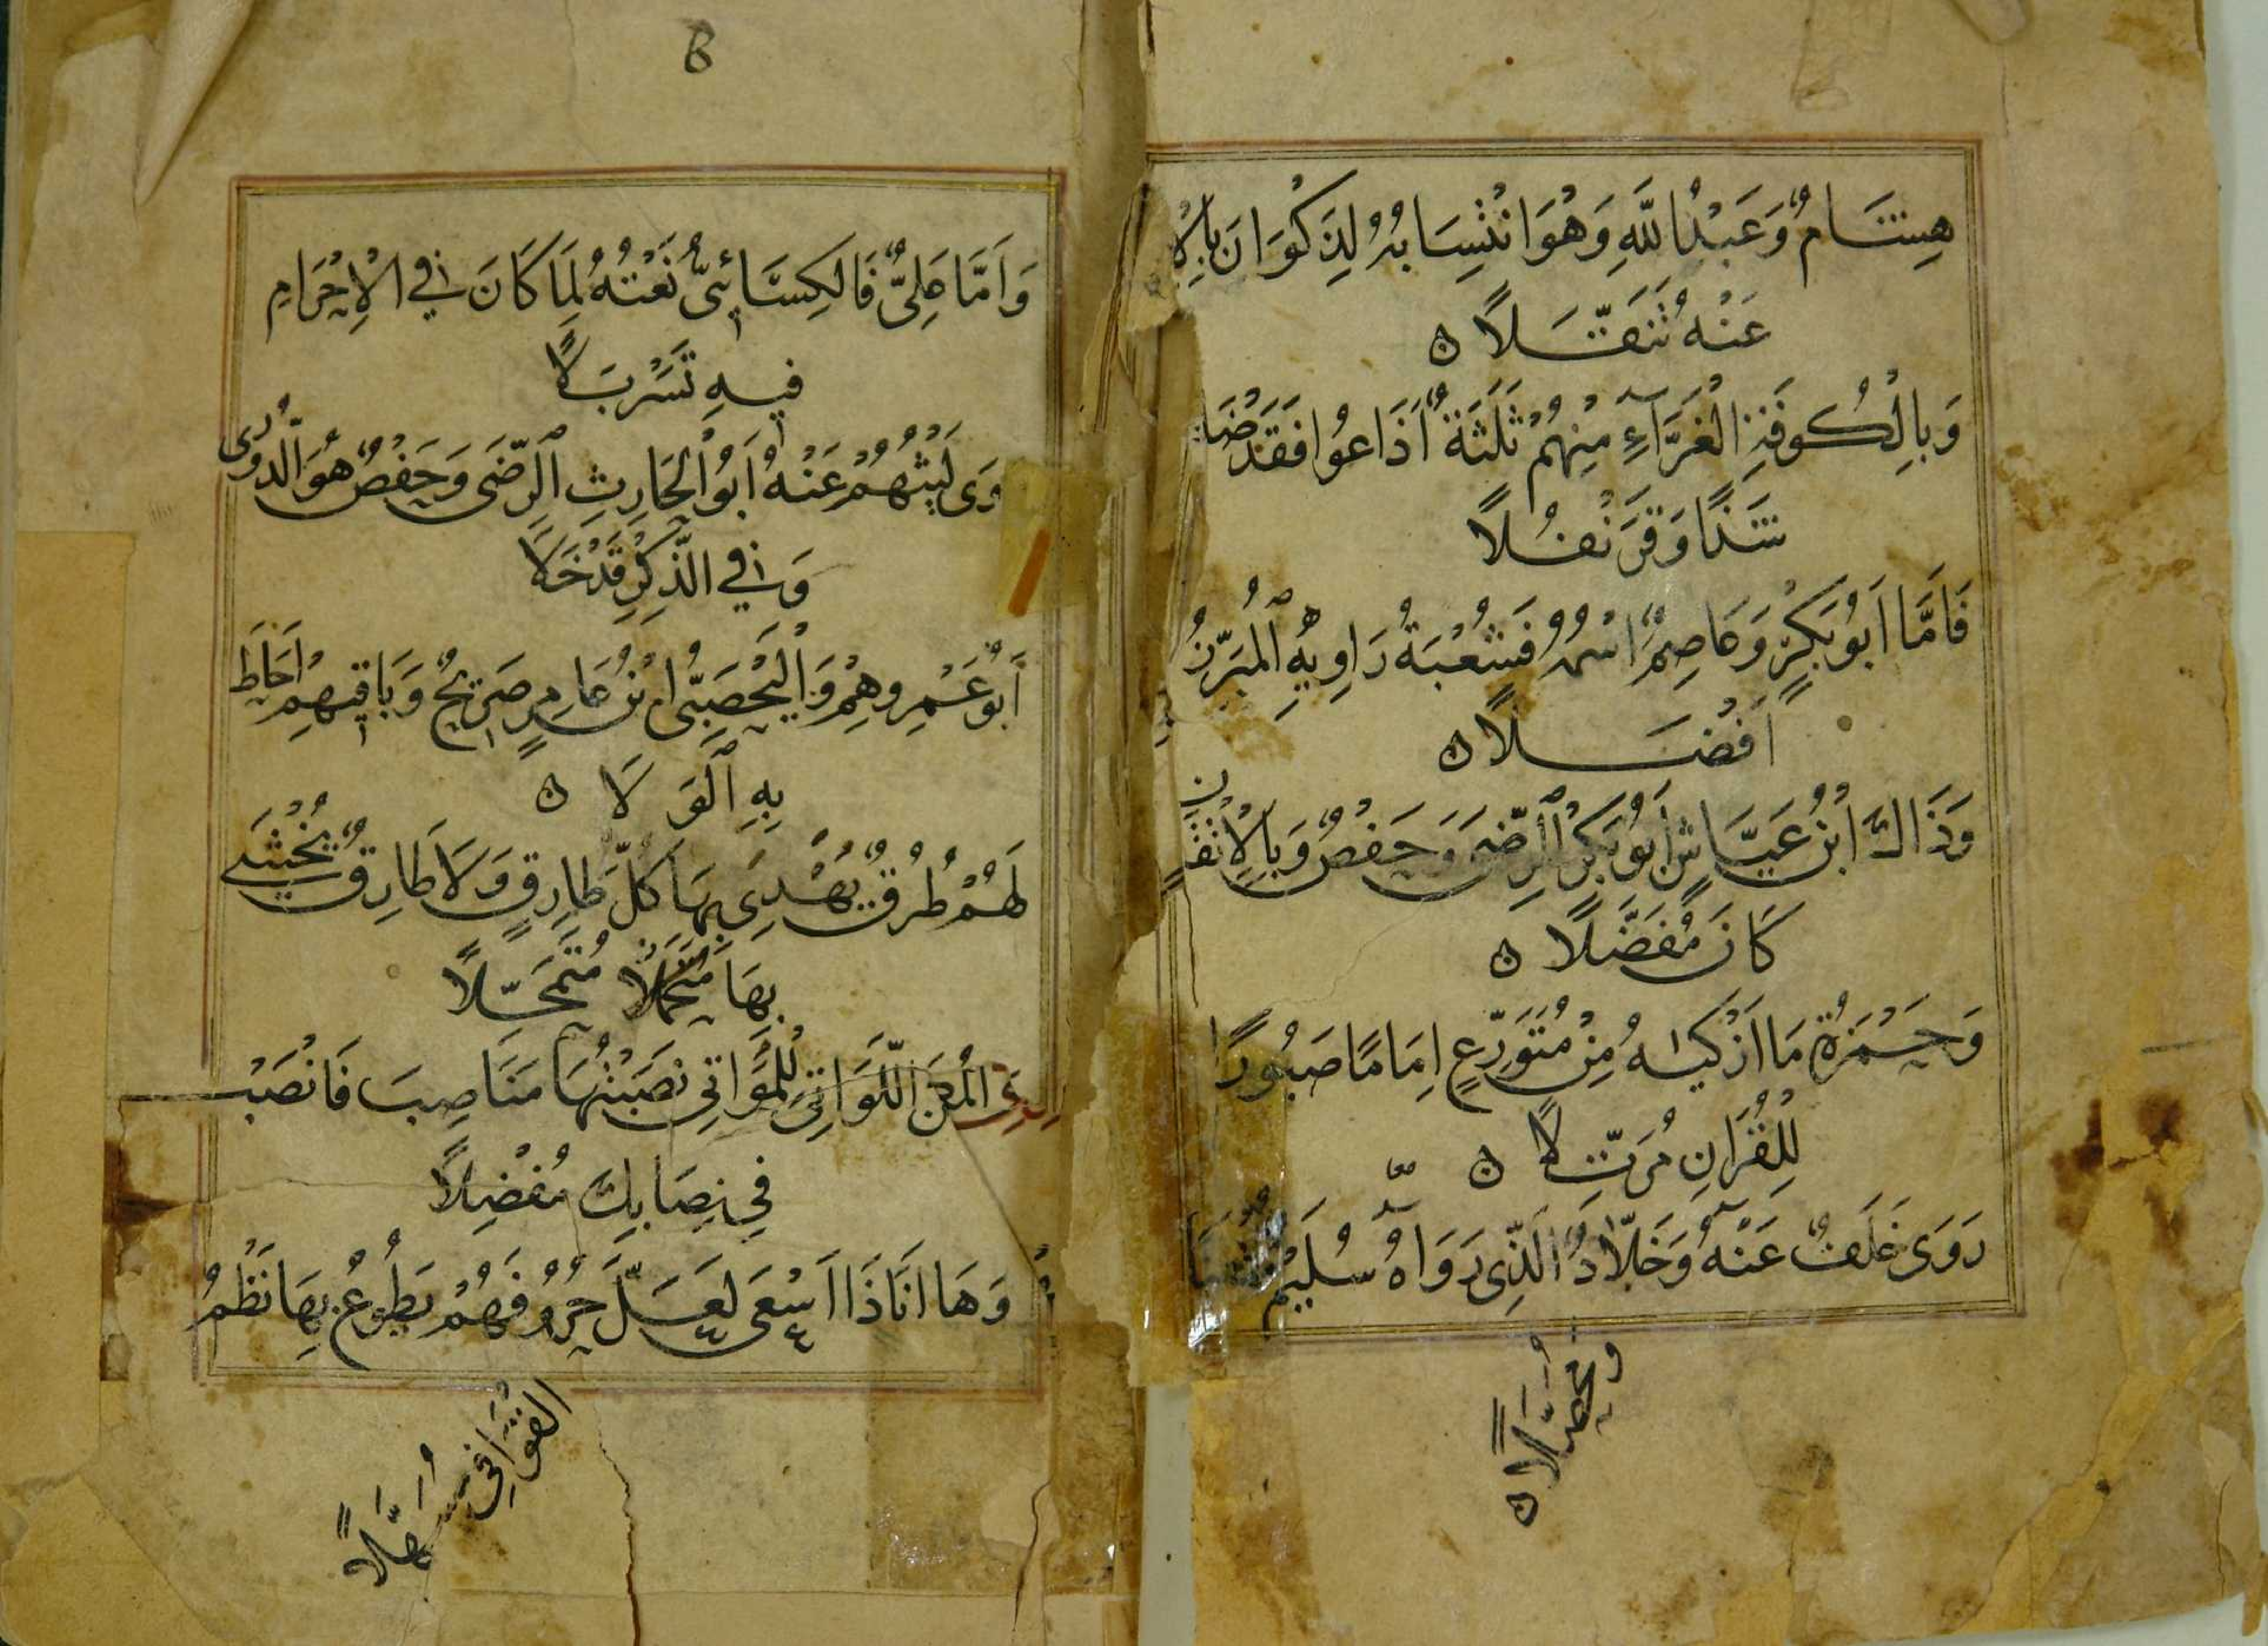 هِشَامٌ وَعَبْدُ اللّٰهِ وَهْوَ انْتِسَابُهُ لِذَكْوَانَ بِالْاِ
عَنْهُ تَنَقَّلَا ۝
وَبِالْكُوفَةِ الْغَرَّآءِ مِنْهُمْ ثَلَثَةٌ اَذَاعُوا فَقَدْ ضَا
شَذًا وَقَرَنْفُلًا
فَاَمَّا اَبُو بَكْرٍ وَعَاصِمٌ اسْمُهُ فَشُعْبَةُ رَاوِيهِ الْمُبَرِّزُ
اَفْضَلًا ۝
وَذَاكَ ابْنُ عَيَّاشٍ اَبُو بَكْرٍ الرِّضَى وَحَفْصٌ وَبِالْاِتْقَانِ
كَانَ مُفَضَّلًا ۝
وَحَمْزَةُ مَا اَزْكَاهُ مِنْ مُتَوَرِّعٍ اِمَامًا صَبُورًا
لِلْقُرَانِ مُرَتِّلًا ۝
رَوَى خَلَفٌ عَنْهُ وَخَلَّادٌ الَّذِى رَوَاهُ سُلَيْمٌ
وَمُحَصَّلًا ۝
B
وَاَمَّا عَلِىٌّ فَالْكِسَائِىُّ نَعْتُهُ لِمَا كَانَ فِى الْاِحْرَامِ
فِيهِ تَسَرْبَلًا
رَوَى لَيْثُهُمْ عَنْهُ اَبُو الْحَارِثِ الرِّضَى وَحَفْصٌ هُوَ الدُّورِى
وَفِى الذِّكْرِ قَدْ خَلَا
اَبُو عَمْرِهِمْ وَالْيَحْصَبِىُّ ابْنُ عَامِرٍ صَرِيحٌ وَبَاقِيهِمْ اَحَاطَ
بِهِ الْوَلَا ۝
لَهُمْ طُرُقٌ يُهْدَى بِهَا كُلُّ طَارِقٍ وَلَا طَارِقٌ يُخْشَى
بِهَا مُتَمَحِّلًا
اللَّوَاتِى لِلْمُوَاتِى نَصَبْتُهَا مَنَاصِبَ فَانْصَبْ
فِى نِصَابِكَ مُفْضِلًا
وَهَا اَنَا ذَا اَسْعَى لَعَلَّ حُرُوفَهُمْ يَطُوعُ بِهَا نَظْمُ
الْقَوَافِى مُسَهِّلًا